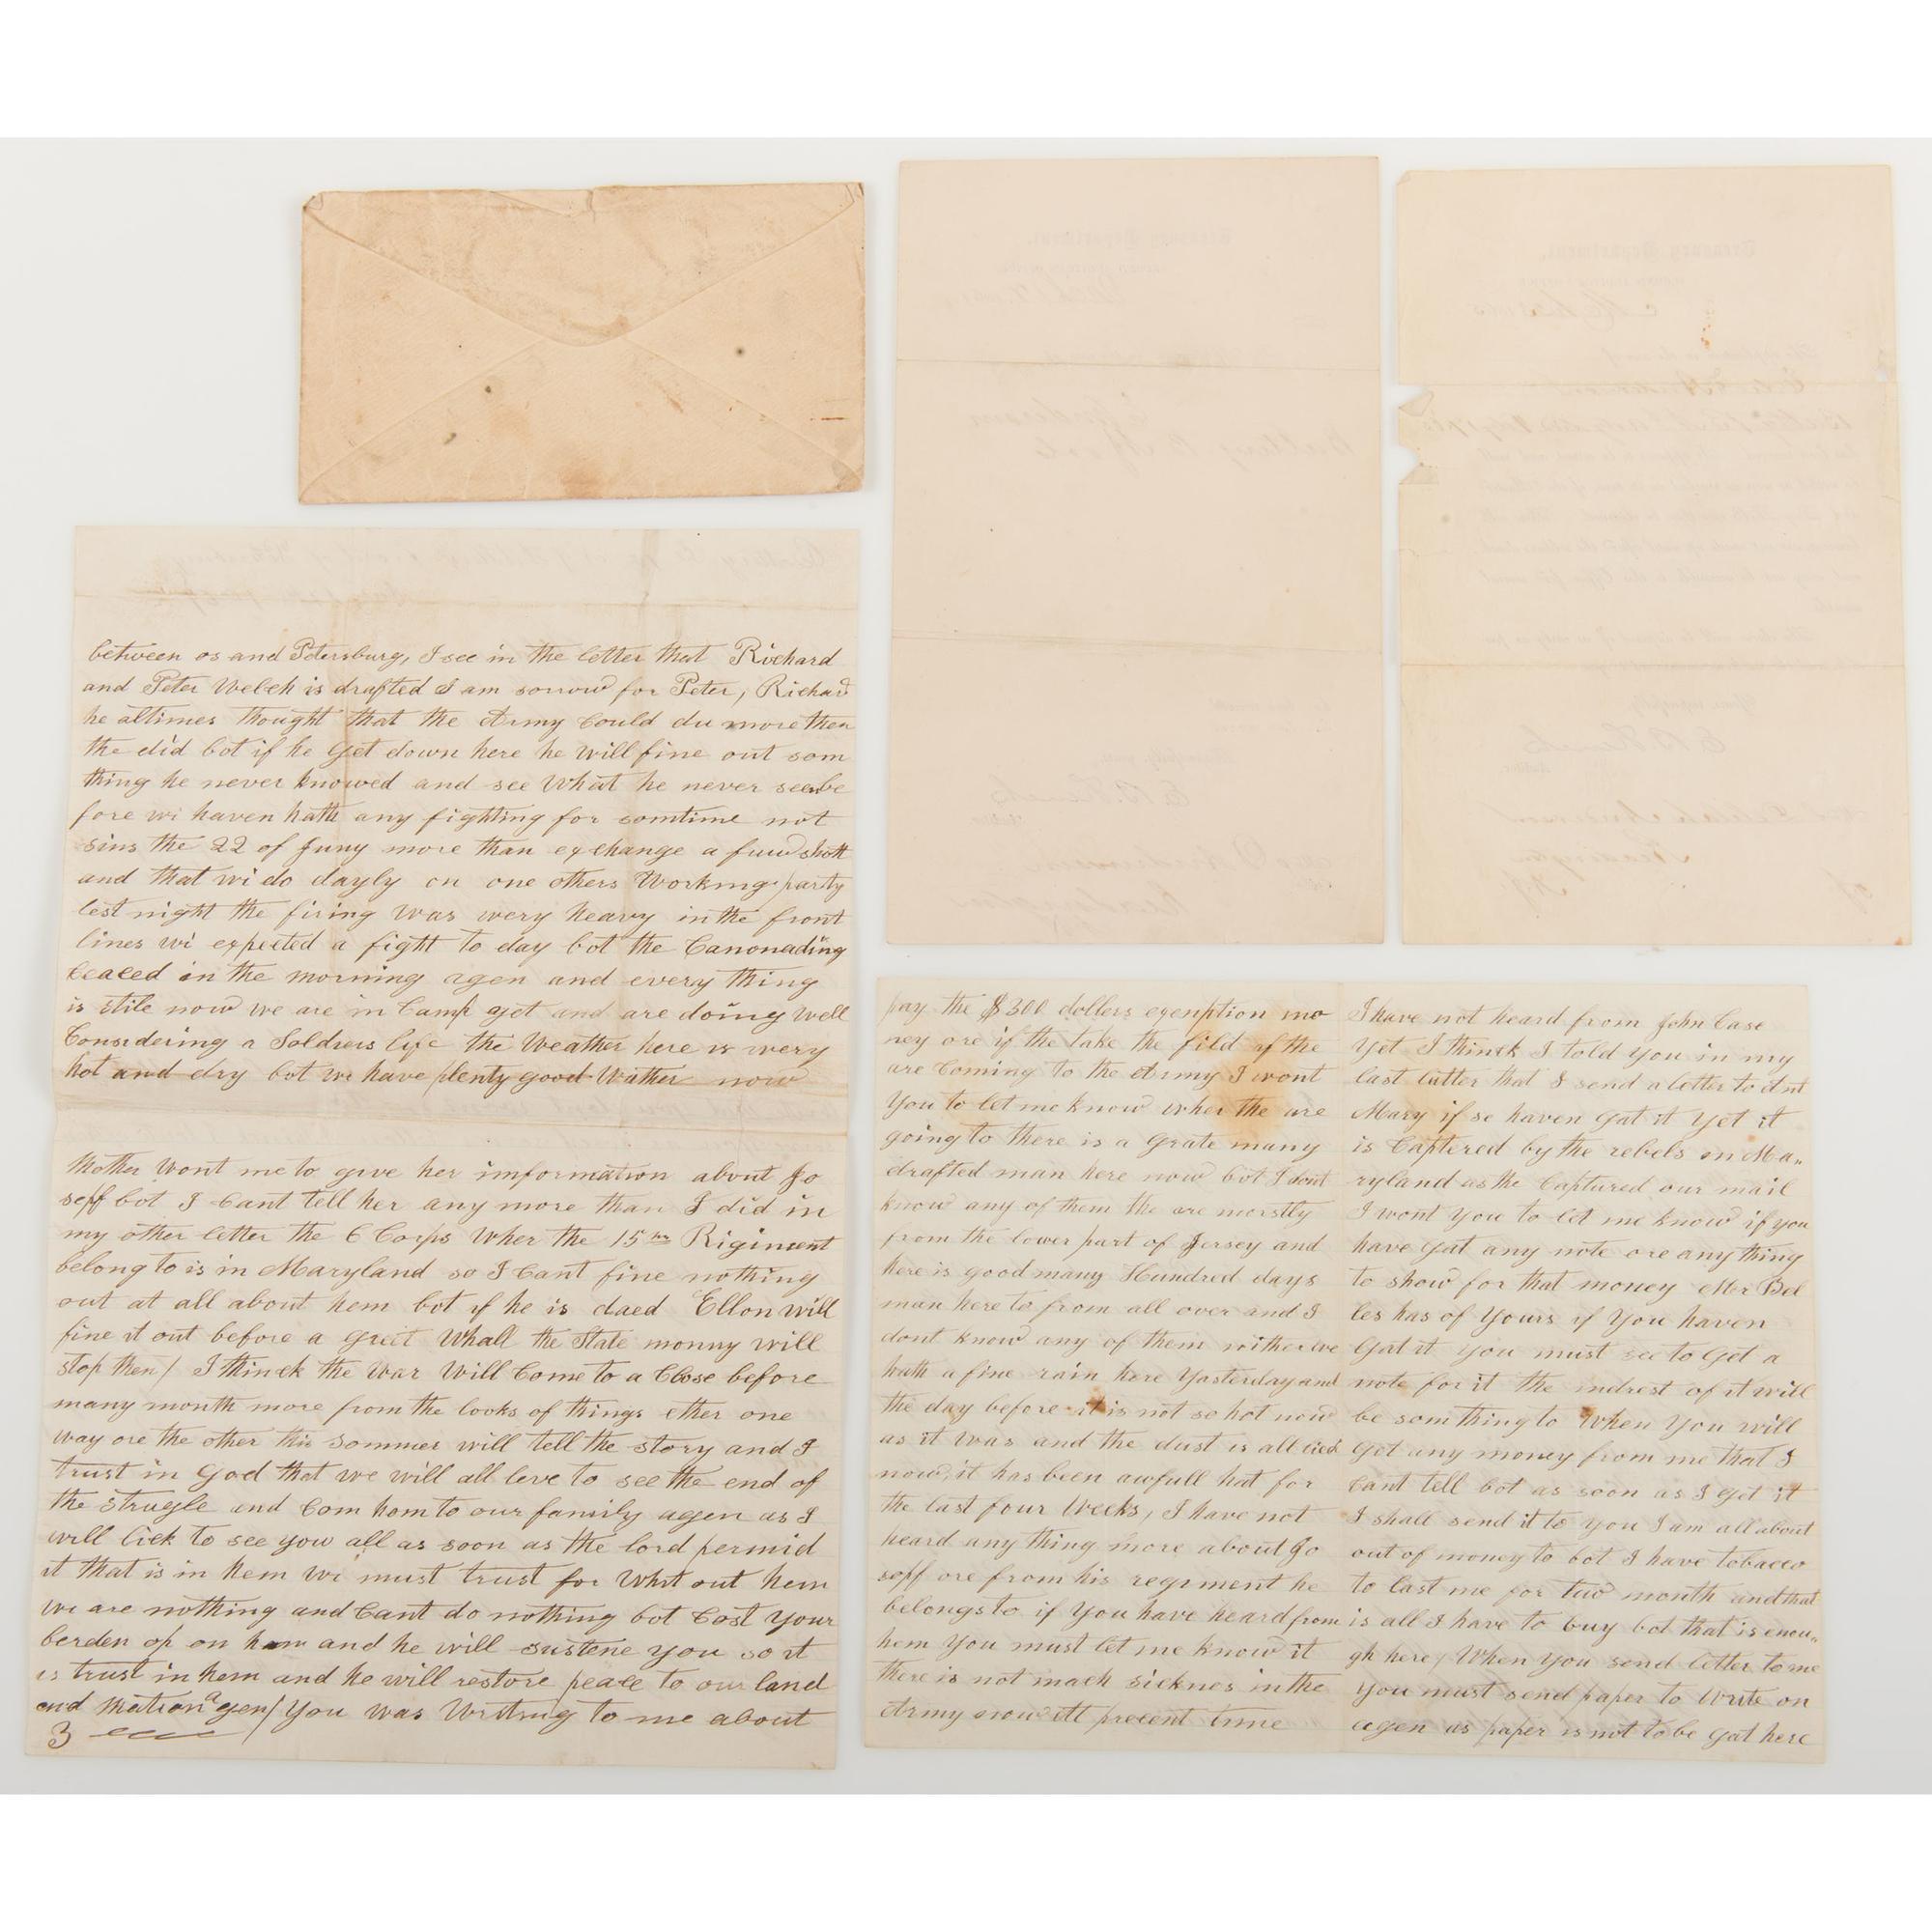 between os and Petersburg, I see in the letter that Richard
and Peter Welch is drafted I am sorrow for Peter, Richard
he altimes thought that the Army Could du more then
the did bot if he get down here he will fine out som
thing he never knowed and see What he never seen be
fore wi haven hath any fighting for somtime not
sins the 22 of Juny more than exchange a fuw shott
and that wi do dayly on one others Working party
lest night the firing Was wery heavy in the front
lines wi expected a fight to day bot the Canonading
Ceaced in the morning agen and every thing
is stile now we are in Camp yet and are doing well
Considering a Soldiers life the Weather here is wery
hot and dry bot we have plenty good Wather now
Mother Wont me to give her imformation about Jo
seff bot I Cant tell her any more than I did in
my other letter the 6 Corps Wher the 15th Rigiment
belong to is in Maryland so I Cant fine nothing
out at all about hem bot if he is daed Ellon will
fine it out before a greit Whall the State monny will
stop then / I thinck the War Will Come to a Close before
many month more from the looks of things ether one
way ore the other this Sommer will tell the story and I
trust in God that we will all leve to see the end of
the Strugle and Com hom to our family agen as I
will lick to see you all as soon as the lord permid
it that is in hem Wi must trust for Whit out hem
we are nothing and Cant do nothing bot Cost your
berden op on hem and he will sustene you so it
is trust in hem and he will restore peace to our land
and Nation agen / You was Writing to me about
3
Treasury Department,
Treasury Department,
pay the $300 dollers exenption mo
ney ore if the take the fild if the
are Coming to the Army I wont
You to let me know wher the are
going to there is a Grate many
drafted man here now bot I dont
know any of them the are morstly
from the lower part of Jersey and
here is good many Hundred days
man here to from all over and I
dont know any of them nither we
hath a fine rain here Yasterday and
the day before it is not so hot now
as it was and the dust is all
now, it has been awfull hat for
the last four Weeks, I have not
heard any thing more about Jo
seff ore from his regiment he
belongs to if You have heard from
hem You must let me know it
there is not mach sicknes in the
Army now att precent time
I have not heard from John Case
Yet I thinck I told you in my
last latter that I send a letter to Ant
Mary if se haven gat it Yet it
is Captered by the rebels in Ma„
ryland as the Captured our mail
I wont You to let me know if you
have gat any note ore any thing
to show for that money Mr Bel
les has of Yours if You haven
gat it you must see to get a
note for it the indrest of it will
be som thing to When You will
get any money from me that I
Cant tell bot as soon as I get it
I shall send it to you I am all about
out of money to bot I have tobacco
to last me for tuw month and that
is all I have to buy bot that is enou„
gh here / When You send letter to me
you must send paper to Write on
agen as paper is not to be gat here